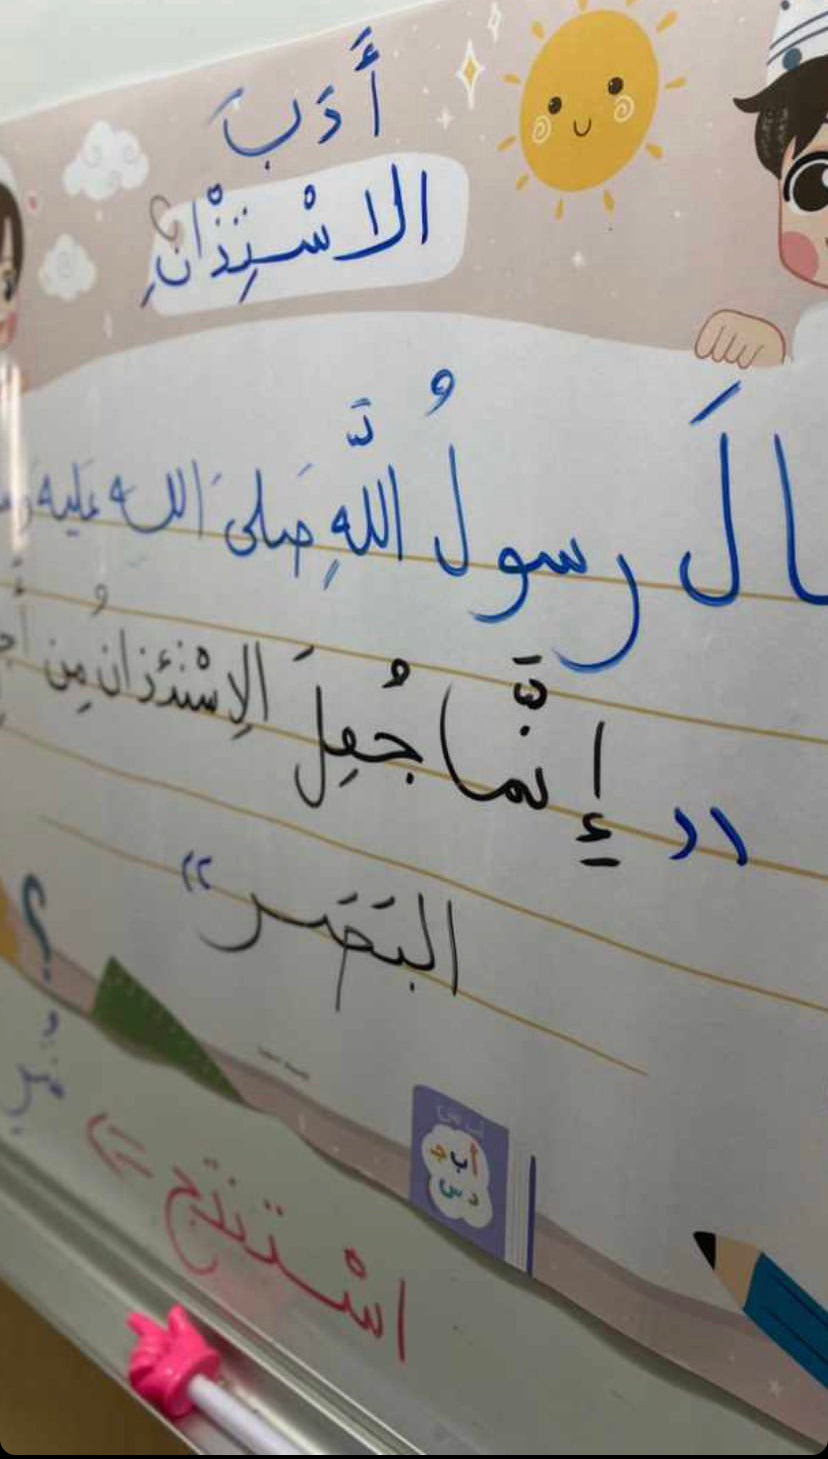 أَدَبَ
الاسْتِذْانِ
الَ رسولُ اللَّهِ صَلى الله عليه
"إِنَّما جُعِلَ الِاسْتئذانُ مِن
البَصَر"
؟
اسْتنتج
أ ب ج
د س